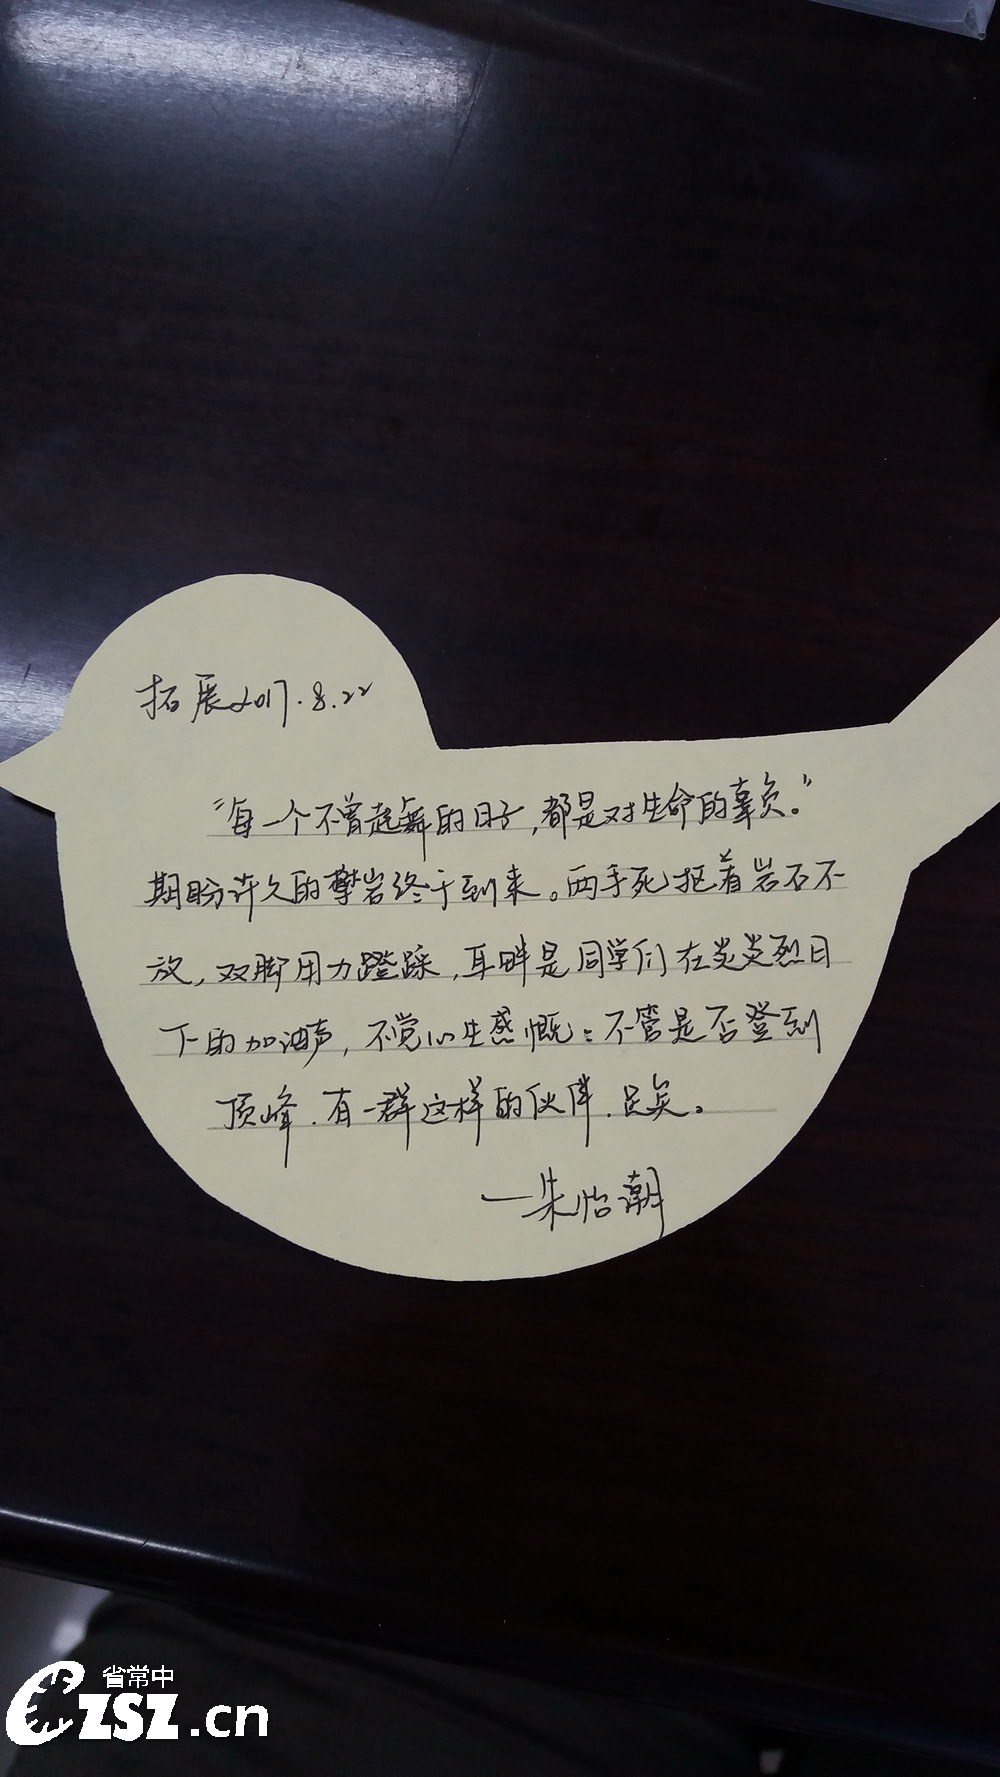 拓展2017.8.22
“每一个不曾起舞的日子,都是对生命的辜负。”
期盼许久的攀岩终于到来。两手死抠着岩石不
放,双脚用力蹬踩,耳畔是同学们在炎炎烈日
下的加油声,不觉心生感慨:不管是否登到
顶峰.有一群这样的伙伴.足矣。
——朱怡潮
省常中
CZSZ.cn